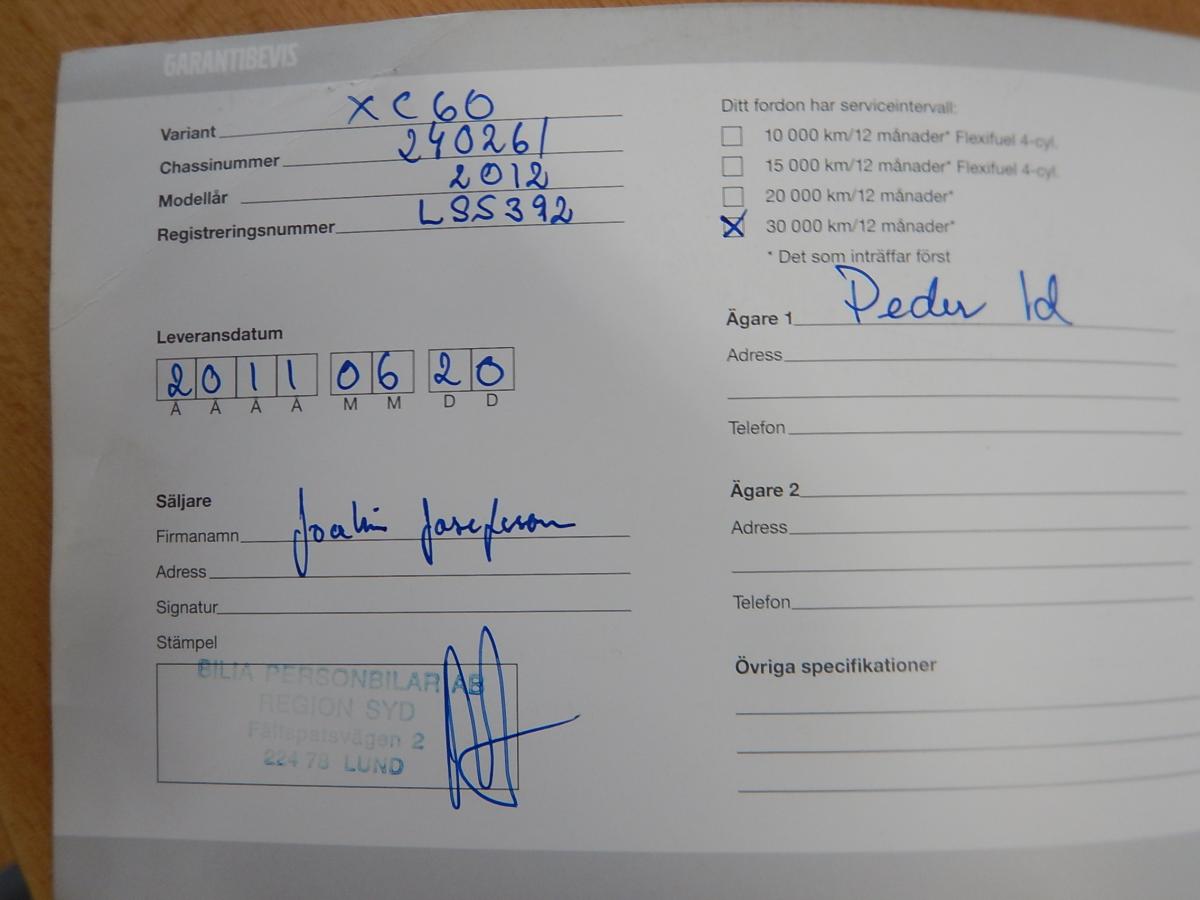 GARANTIBEVIS
Variant XC60
Chassinummer 240261
Modellår 2012
Registreringsnummer LSS392
Leveransdatum
2011 06 20
Å Å Å Å M M D D
Säljare
Firmanamn Joakim Josefsson
Adress
Signatur
Stämpel
BILIA PERSONBILAR AB
REGION SYD
Fältspatsvägen 2
224 78 LUND
Ditt fordon har serviceintervall:
10 000 km/12 månader* Flexifuel 4-cyl.
15 000 km/12 månader* Flexifuel 4-cyl.
20 000 km/12 månader*
X 30 000 km/12 månader*
* Det som inträffar först
Ägare 1 Peder Id
Adress
Telefon
Ägare 2
Adress
Telefon
Övriga specifikationer